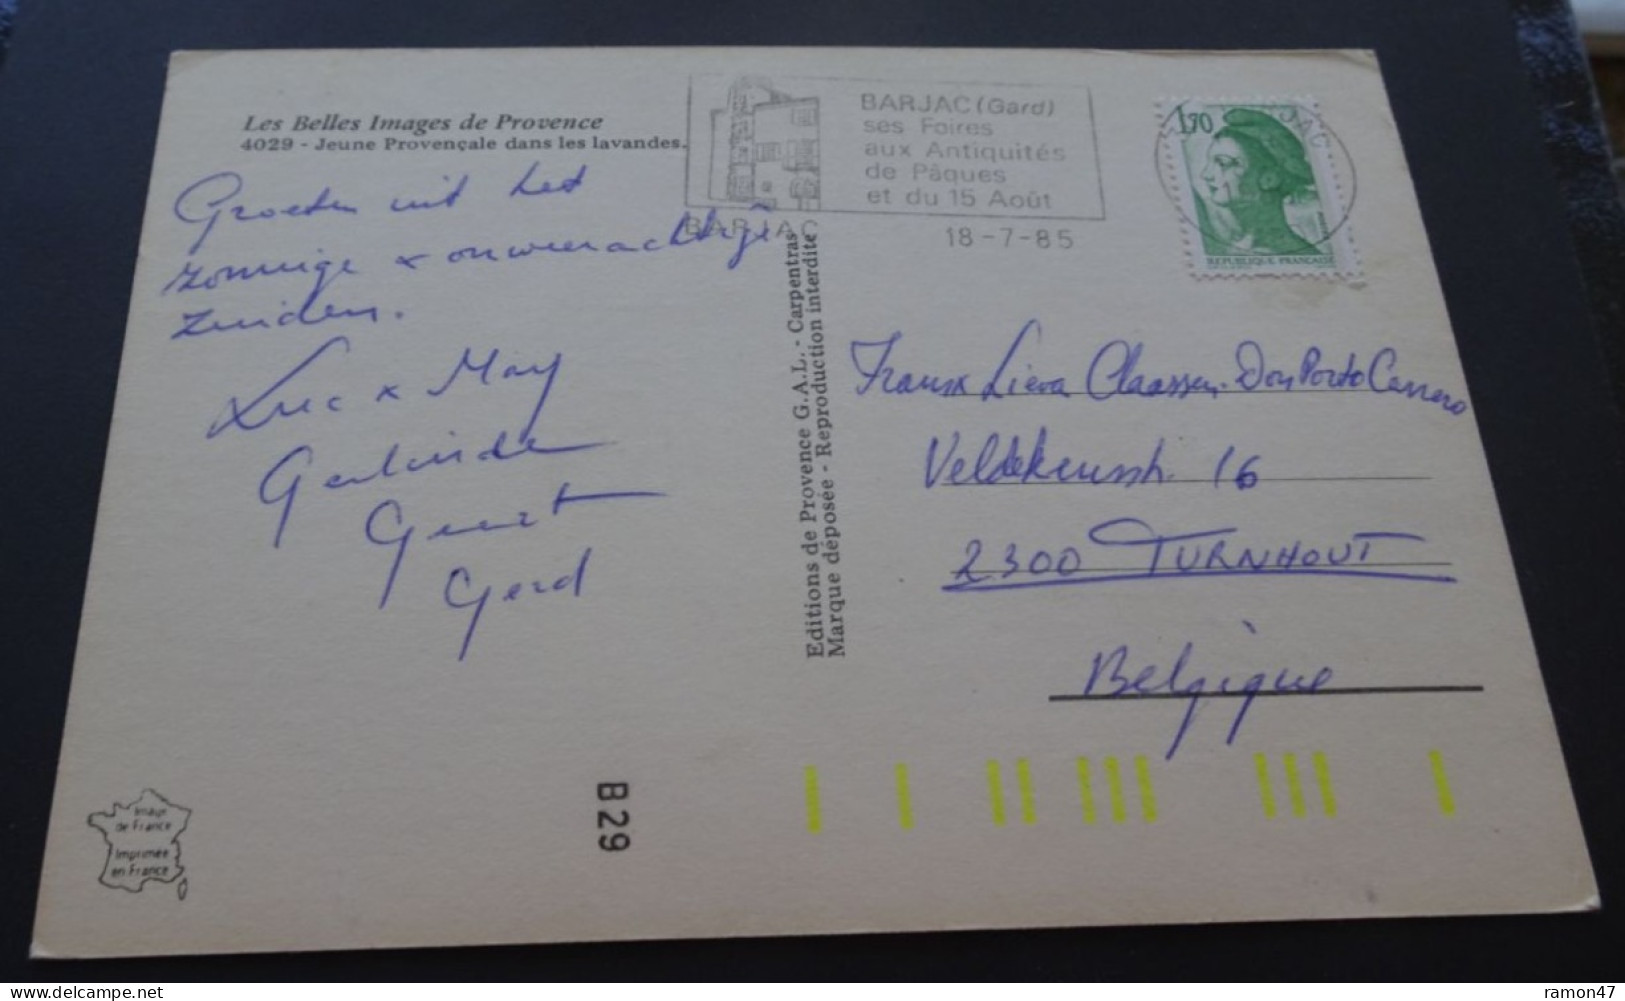 Les Belles Images de Provence
4029 - Jeune Provençale dans les lavandes.
Groeten uit het
zonnige & onweerachtige
zuiden.
Luc & May
Gerlinde
Geert
Gerd
BARJAC (Gard)
ses Foires
aux Antiquités
de Pâques
et du 15 Août
BARJAC
18-7-85
1,70
REPUBLIQUE FRANÇAISE
Editions de Provence G.A.L. - Carpentras
Marque déposée - Reproduction interdite
Frans & Lieva Claassen-Don Porto Carrero
Veldekensstr. 16
2300 TURNHOUT
Belgique
Image
de France
Imprimée
en France
B 29
ramon47